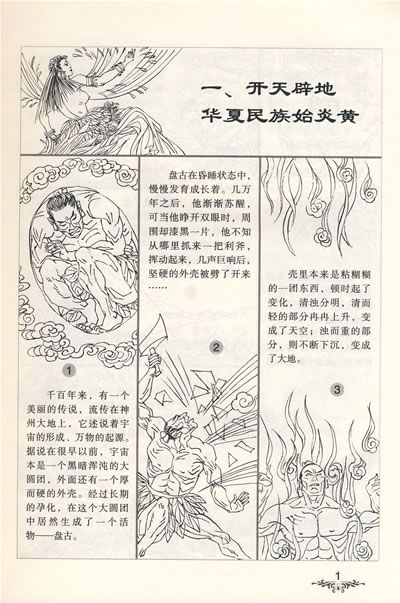 一、开天辟地
华夏民族始炎黄
千百年来，有一个
美丽的传说，流传在神
州大地上，它述说着宇
宙的形成、万物的起源。
据说在很早以前，宇宙
本是一个黑暗浑沌的大
圆团，外面还有一个厚
而硬的外壳。经过长期
的孕化，在这个大圆团
中居然生成了一个活
物——盘古。
1
盘古在昏睡状态中，
慢慢发育成长着。几万
年之后，他渐渐苏醒，
可当他睁开双眼时，周
围却漆黑一片，他不知
从哪里抓来一把利斧，
挥动起来，几声巨响后，
坚硬的外壳被劈了开来
……
2
壳里本来是粘糊糊
的一团东西，顿时起了
变化，清浊分明，清而
轻的部分冉冉上升，变
成了天空；浊而重的部
分，则不断下沉，变成
了大地。
3
1